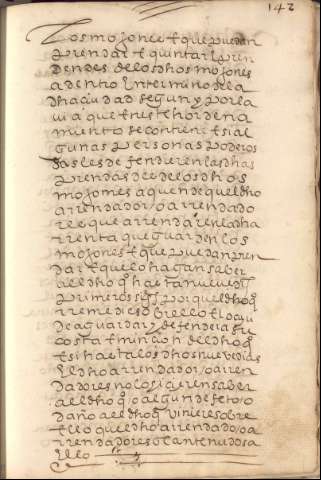 142
Los mojones E que puedan
prendar E quintar las pren
des de los dhos mojones
a dentro En termino de la
dha ciudad segun y por la
via que En este hordena
miento se contiene E si al
gunas personas poderos
sas les defendieren las dhas
prendas de de los dhos
mojones aquende quel dho
arrendador / o arrendado
res que arrendaren la dha
rrenta que guarden los
mojones E que puedan pren
dar E que lo hagan saber
a el dho qo hasta nueve dias
primeros sigtes por que el dho qo
rremedie sobre ello E lo ayu
de a guardar y defender a su
costa E mincion del dho qo
E si hasta los dhos nueve dias
El dho arrendador / o arren
dadores no lo hizieren saber
a el dho qo / o algun defeto / o
daño a el dho qo viniere sobre
Ello que el dho arrendador / o a
rrendadores sean tenudos a
Ello